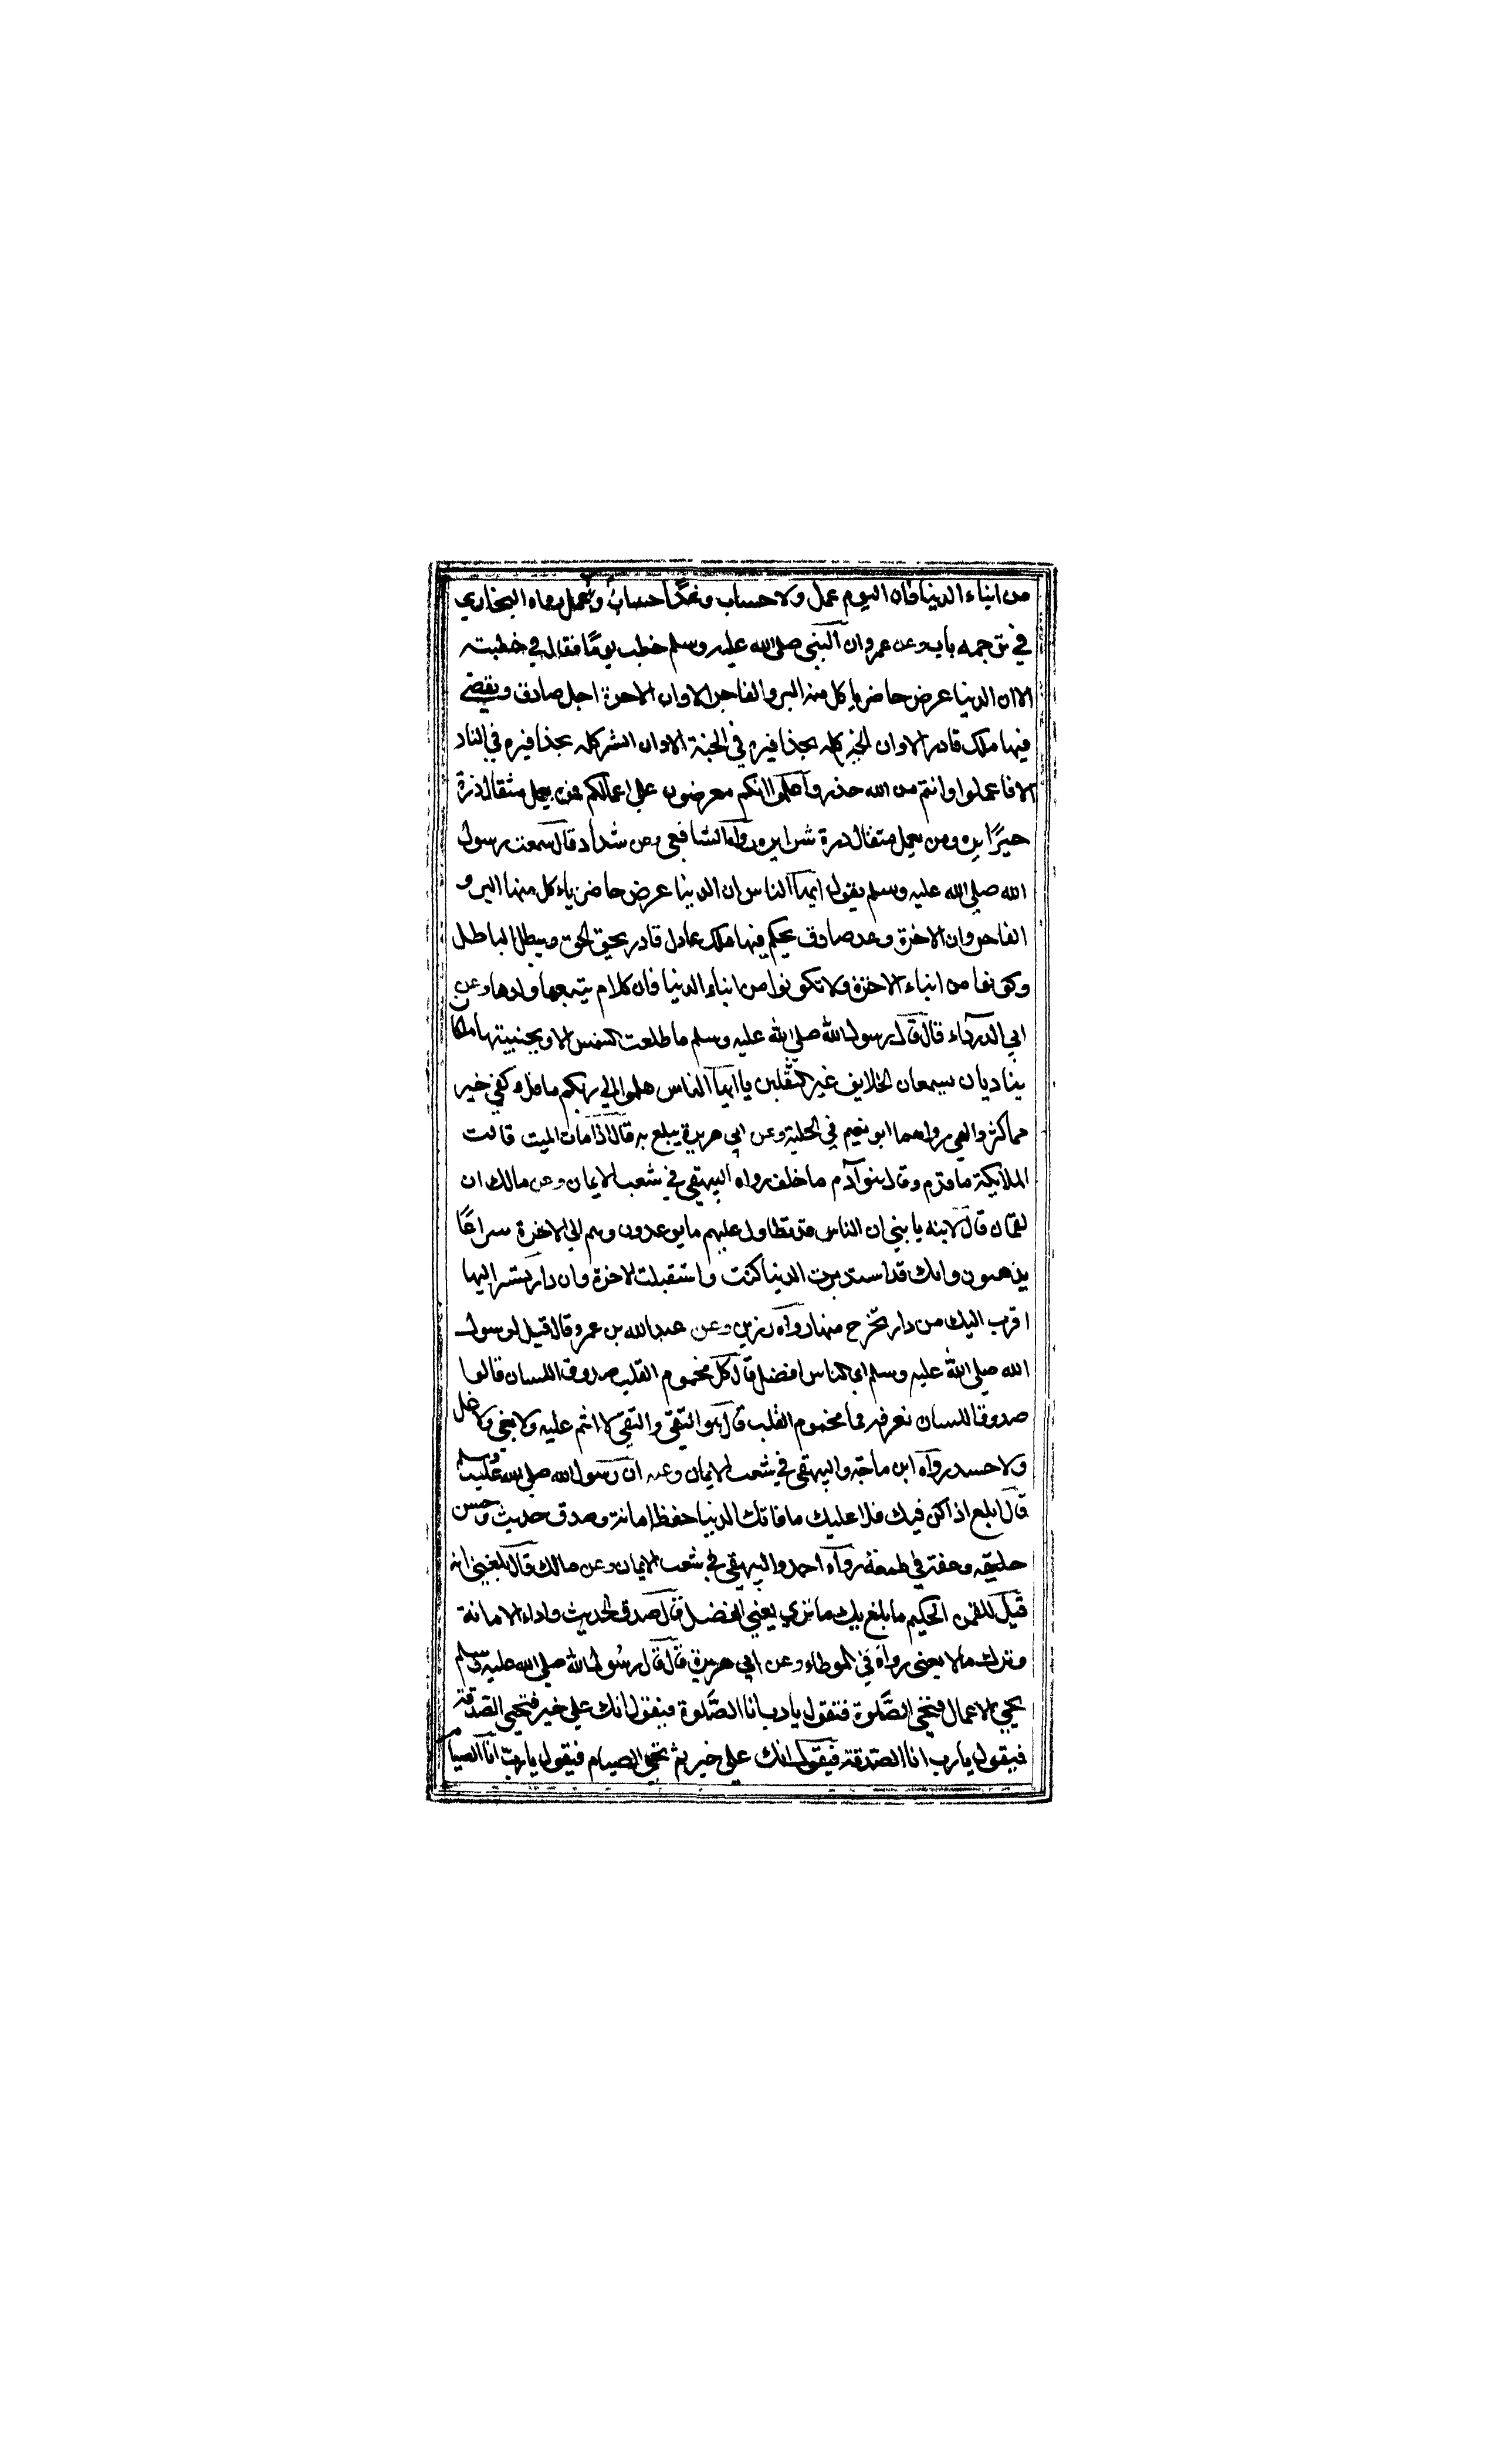 من ابناء الدنيا فان اليوم عمل ولا حساب وغدًا حساب ولا عمل رواه البخاري
في ترجمه باب وعن عمرو ان النبي صلى الله عليه وسلم خطب يومًا فقال في خطبته
الا ان الدنيا عرض حاضر ياكل منه البر والفاجر الا وان الاخرة اجل صادق ويقضي
فيها ملك قادر الا وان الخير كله بحذافيره في الجنة الا وان الشر كله بحذافيره في النار
الا فاعملوا وانتم من الله حذر واعلموا انكم معرضون على اعمالكم فمن يعمل مثقال ذرة
خيرًا يره ومن يعمل مثقال ذرة شرا يره رواه الشافعي وعن شداد قال سمعت رسول
الله صلى الله عليه وسلم يقول ايها الناس ان الدنيا عرض حاضر ياءكل منها البر و
الفاجر وان الاخرة وعد صادق يحكم فيها ملك عادل قادر يحق الحق ويبطل الباطل
وكونوا من ابناء الاخرة ولا تكونوا من ابناء الدنيا فان كل ام يتبعها ولدها وعن
ابي الدرداء قال قال رسول الله صلى الله عليه وسلم ما طلعت الشمس الا وبجنبيتها ملكا
يناديان يسمعان الخلايق غير الثقلين يا ايها الناس هلموا الي ربكم ما قل وكفي خير
مما كثر والهي رواهما ابو نعيم في الحلية وعن ابي هريرة يبلغ به قال اذا مات الميت قالت
الملايكة ما قدم وقال بنو آدم ما خلف رواه البيهقي في شعب الايمان وعن مالك ان
لقمان قال لابنه يا بني ان الناس قد تطاول عليهم ما يوعدون وهم الي الاخرة سراعًا
يذهبون وانك قد استدبرت الدنيا كنت واستقبلت الاخرة وان دار تسير اليها
اقرب اليك من دار تخرج منها رواه رزين وعن عبد الله بن عمرو قال قيل لرسول
الله صلى الله عليه وسلم اي الناس افضل قال كل مخموم القلب صدوق اللسان قالوا
صدوق اللسان نعرفه فما مخموم القلب قال هو النقي والتقي لا اثم عليه ولا بغي ولا غل
ولا حسد رواه ابن ماجه والبيهقي في شعب الايمان وعنه ان رسول الله صلى الله عليه وسلم
قال اربع اذا كن فيك فلا عليك ما فاتك الدنيا حفظ امانة وصدق حديث وحسن
خليقه وعفة في طمعة رواه احمد والبيهقي في شعب الايمان وعن مالك قال بلغني انه
قيل للقمن الحكيم ما بلغ بك ما نري يعني الفضل قال صدق الحديث واداء الامانة
وترك ما لا يعني رواه في الموطاء وعن ابي هريرة قال قال رسول الله صلى الله عليه وسلم
يجي الاعمال فتجي الصلوة فتقول يا رب انا الصلوة فيقول انك على خير فتجي الصدقة
فيقول يارب انا الصدقة فيقول انك على خير ثم يجي الصيام فيقول يا رب انا الصيام